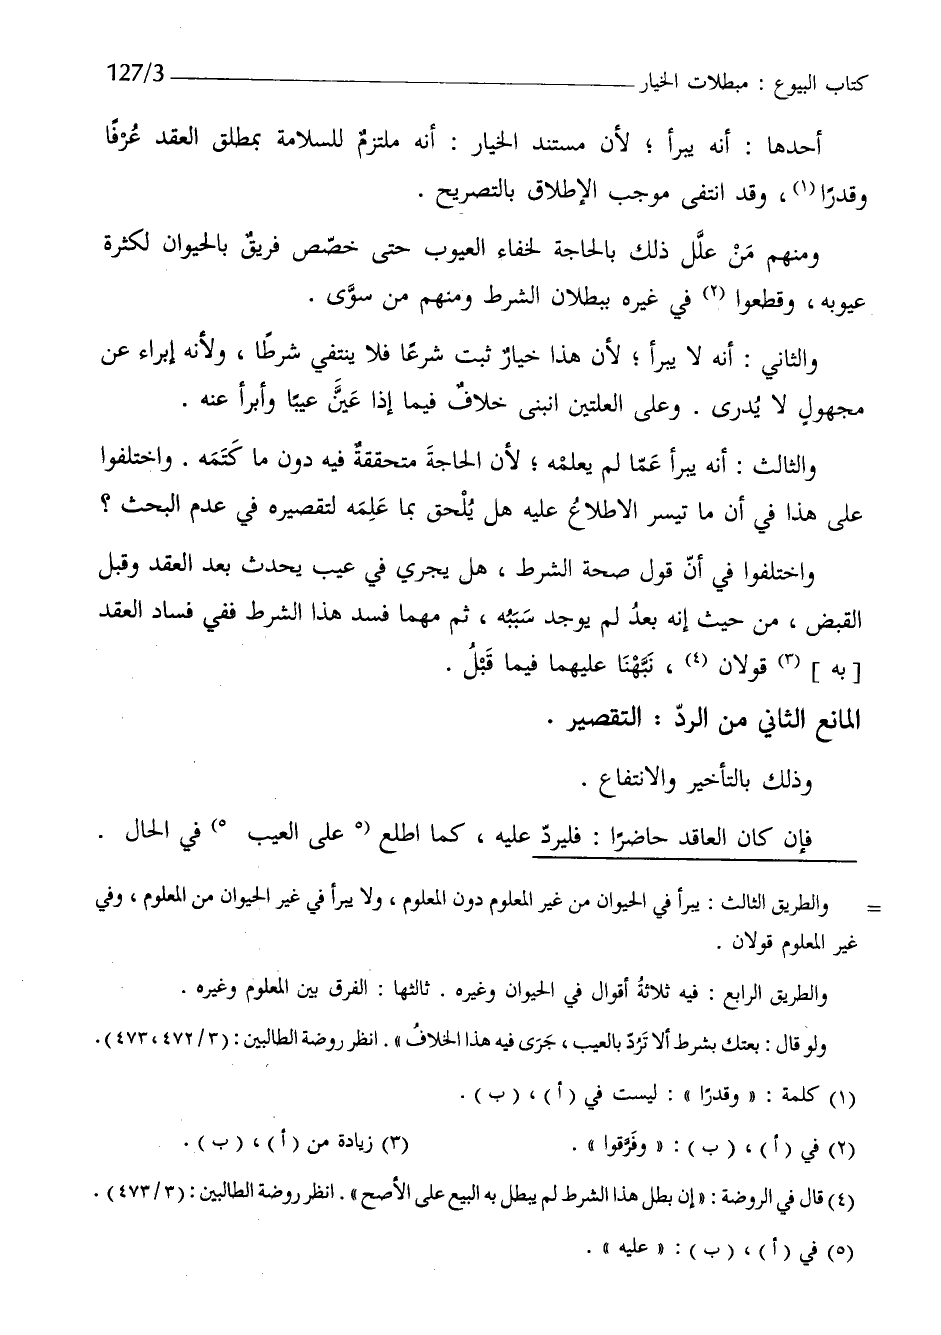 كتاب البيوع : مبطلات الخيار 127/3
أحدها : أنه يبرأ ؛ لأن مستند الخيار : أنه ملتزمٌ للسلامة بمطلق العقد عُرْفًا
وقدرًا (١) ، وقد انتفى موجب الإطلاق بالتصريح .
ومنهم مَنْ علَّل ذلك بالحاجة لخفاء العيوب حتى خصّص فريقٌ بالحيوان لكثرة
عيوبه ، وقطعوا (٢) في غيره ببطلان الشرط ومنهم من سوَّى .
والثاني : أنه لا يبرأ ؛ لأن هذا خيارٌ ثبت شرعًا فلا ينتفي شرطًا ، ولأنه إبراء عن
مجهولٍ لا يُدرى . وعلى العلتين انبنى خلافٌ فيما إذا عَيَّنَ عيبًا وأبرأ عنه .
والثالث : أنه يبرأ عَمّا لم يعلمْه ؛ لأن الحاجةَ متحققةٌ فيه دون ما كَتَمَه . واختلفوا
على هذا في أن ما تيسر الاطلاعُ عليه هل يُلْحق بما عَلِمَه لتقصيره في عدم البحث ؟
واختلفوا في أنّ قول صحة الشرط ، هل يجري في عيب يحدث بعد العقد وقبل
القبض ، من حيث إنه بعدُ لم يوجد سَبَبُه ، ثم مهما فسد هذا الشرط ففي فساد العقد
[ به ] (٣) قولان (٤) ، نَبَّهْنَا عليهما فيما قَبْلُ .
المانع الثاني من الردّ : التقصير .
وذلك بالتأخير والانتفاع .
فإن كان العاقد حاضرًا : فليردّ عليه ، كما اطلع (٥ على العيب ٥) في الحال .
= والطريق الثالث : يبرأ في الحيوان من غير المعلوم دون المعلوم ، ولا يبرأ في غير الحيوان من المعلوم ، وفي
غير المعلوم قولان .
والطريق الرابع : فيه ثلاثةُ أقوال في الحيوان وغيره . ثالثها : الفرق بين المعلوم وغيره .
ولو قال : بعتك بشرط ألا تَرُدّ بالعيب ، جَرَى فيه هذا الخلافُ » . انظر روضة الطالبين : (٣/ ٤٧٢ ، ٤٧٣) .
(١) كلمة : « وقدرًا » : ليست في ( أ ) ، ( ب ) .
(٢) في ( أ ) ، ( ب ) : « وفَرَّقوا » . (٣) زيادة من ( أ ) ، ( ب ) .
(٤) قال في الروضة : « إن بطل هذا الشرط لم يبطل به البيع على الأصح » . انظر روضة الطالبين : (٣/ ٤٧٣) .
(٥) في ( أ ) ، ( ب ) : « عليه » .